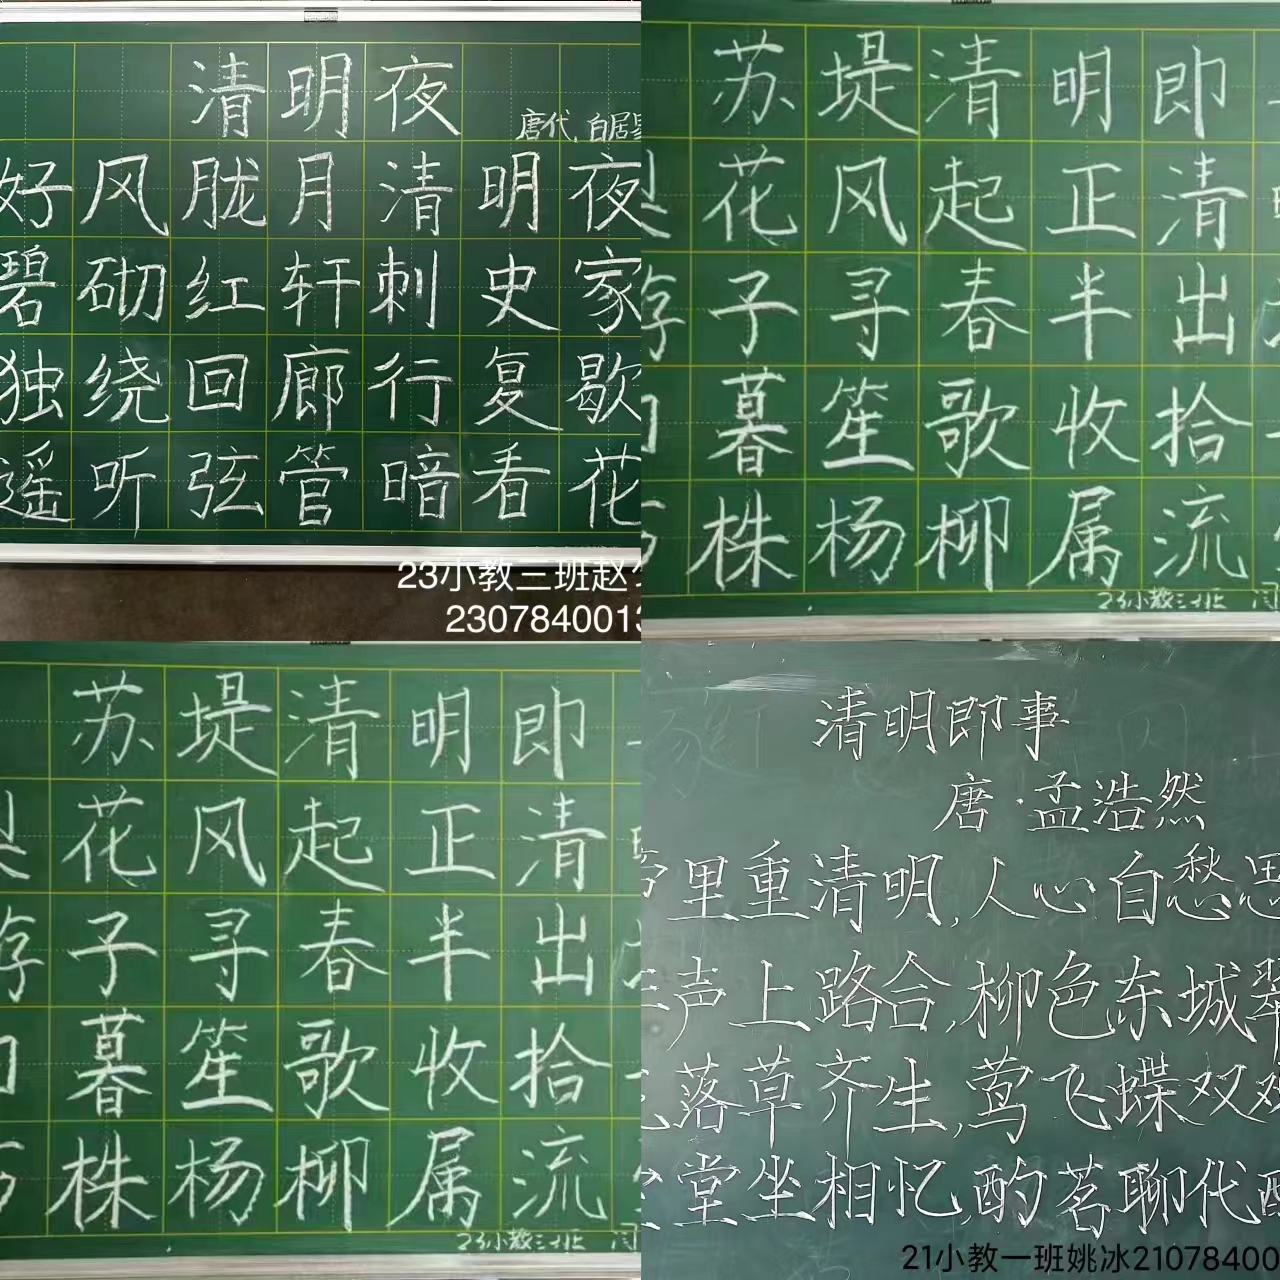 清明夜
唐代.白居易
好风胧月清明夜
碧砌红轩刺史家
独绕回廊行复歇
遥听弦管暗看花
23小教三班赵
230784001
苏堤清明即
花风起正清
子寻春半出
暮笙歌收拾
株杨柳属流
23小教三班
苏堤清明即
花风起正清
子寻春半出
暮笙歌收拾
株杨柳属流
23小教三班
清明即事
唐·孟浩然
里重清明,人心自愁思
声上路合,柳色东城翠
落草齐生,莺飞蝶双双
堂坐相忆,酌茗聊代醉
21小教一班姚冰21078400